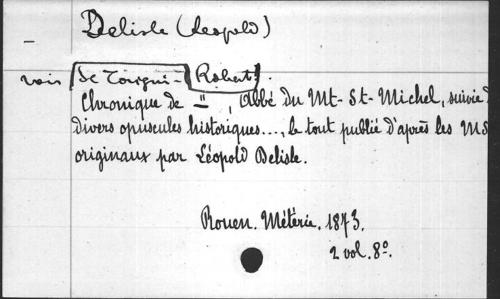 Delisle (Léopold)
vois [De Torigni-] [Robert].
Chronique de –"– , Abbé du Mt-St-Michel, suivie d
divers opuscules historiques..., le tout publié d'après les MS
originaux par Léopold Delisle.
Rouen. Métérie. 1873.
2 vol. 8º.